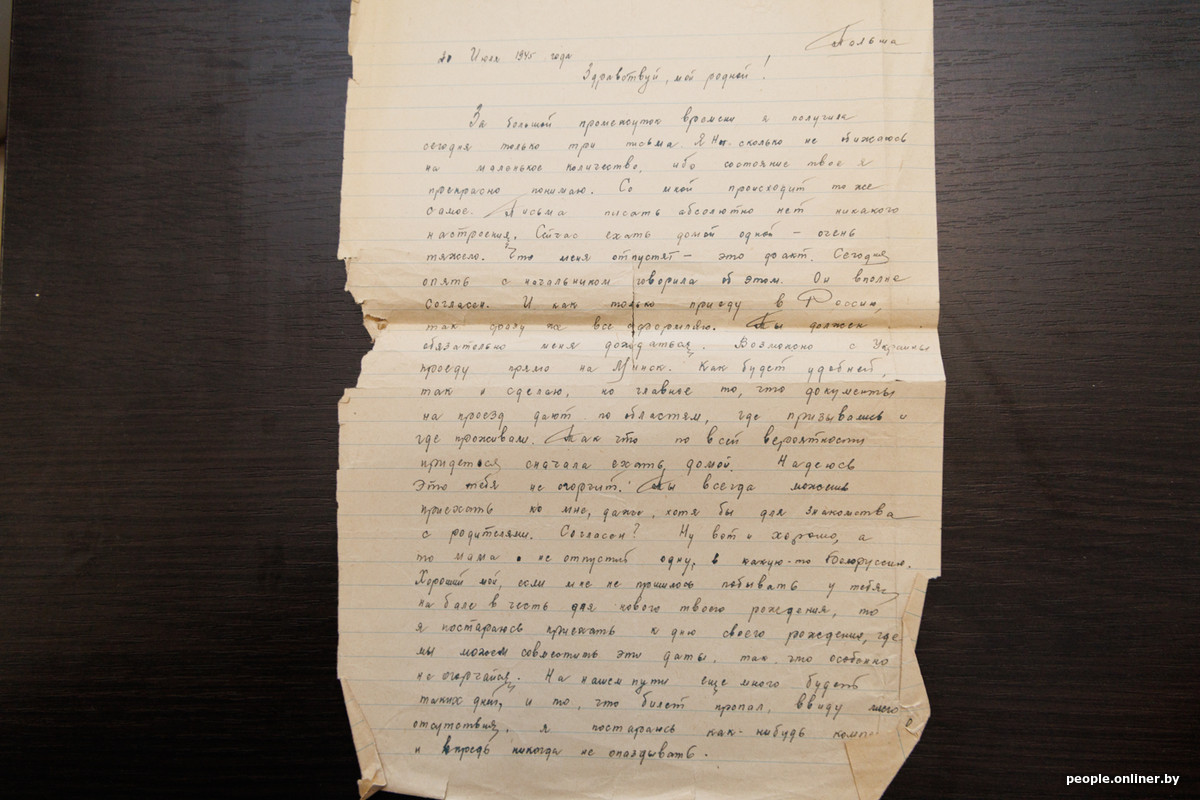 Польша
20 Июля 1945 года
Здравствуй, мой родной!
За большой промежуток времени я получила
сегодня только три письма. Я сколько не обижаюсь
на маленькое количество, ибо состояние твое я
прекрасно понимаю. Со мной происходит то же
самое. Письма писать абсолютно нет никакого
настроения. Сейчас ехать домой одной – очень
тяжело. Что меня отпустят – это факт. Сегодня
опять с начальником говорила об этом. Он вполне
согласен. И как только приеду в Россию,
так сразу же все оформляю. Ты должен
обязательно меня дождаться. Возможно с Украины
проеду прямо на Минск. Как будет удобней,
так и сделаю, но главное то, что документы
на проезд дают по областям, где призывались и
где проживали. Так что по всей вероятности
придется сначала ехать домой. Надеюсь
это тебя не огорчит. Ты всегда можешь
приехать ко мне, даже, хотя бы для знакомства
с родителями. Согласен? Ну вот и хорошо, а
то мама не отпустит одну, в какую-то Белоруссию.
Хороший мой, если мне не пришлось побывать у тебя
на бале в честь дня нового твоего рождения, то
я постараюсь приехать к дню своего рождения, где
мы можем совместить эти даты, так что особенно
не огорчайся. На нашем пути еще много будет
таких дней, и то, что билет пропал, ввиду моего
отсутствия, я постараюсь как-нибудь
и впредь никогда не опаздывать.
people.onliner.by